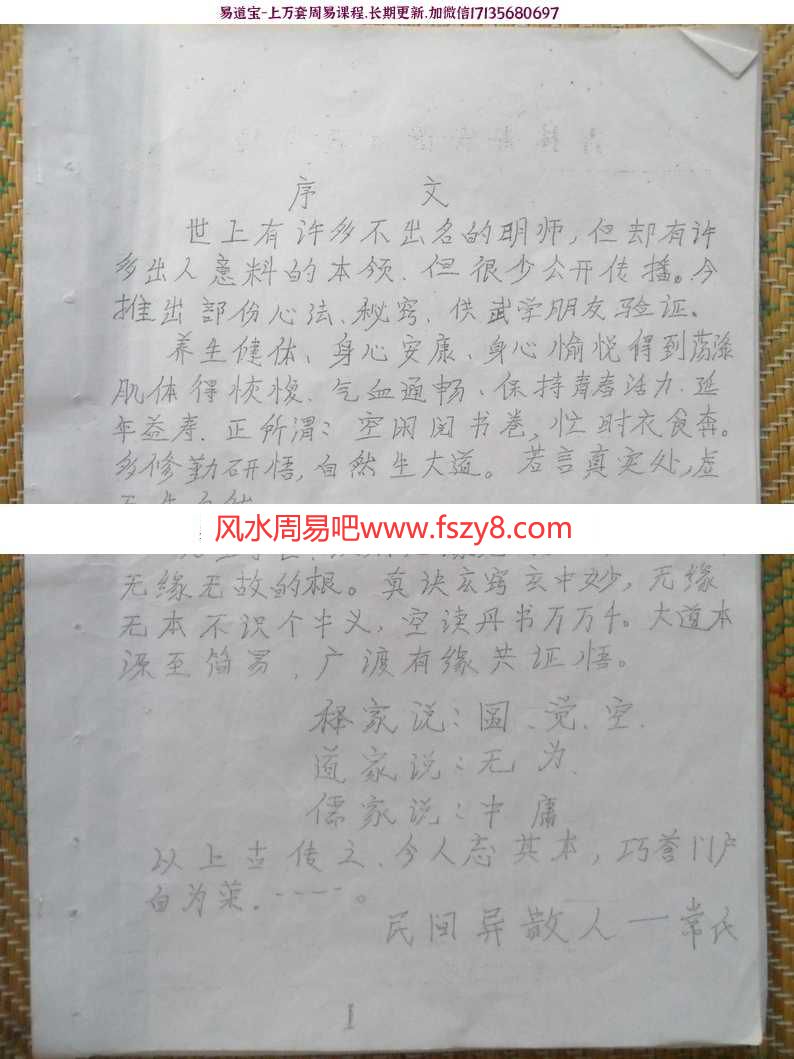 易道宝-上万套周易课程.长期更新.加微信17135680697
序 文
世上有许多不出名的明师,但却有许
多出人意料的本领.但很少公开传播。今
推出部份心法、秘窍、供武学朋友验证、
养生健体、身心安康、身心愉悦得到荡涤
肌体得恢復、气血通畅、保持青春活力.延
年益寿.正所谓:空闲阅书卷,忙时衣食奔。
多修勤研悟,自然生大道。若言真实处,虚
风水周易吧www.fszy8.com
无缘无故的根。真诀玄窍玄中妙,无缘
无本不识个中义,空读丹书万万千。大道本
源至简易,广渡有缘共证悟。
释家说:圆、觉、空.
道家说:无为.
儒家说:中庸
以上古传之、今人忘其本,巧誉门户
自为荣.-----。
民间异散人—常氏
1